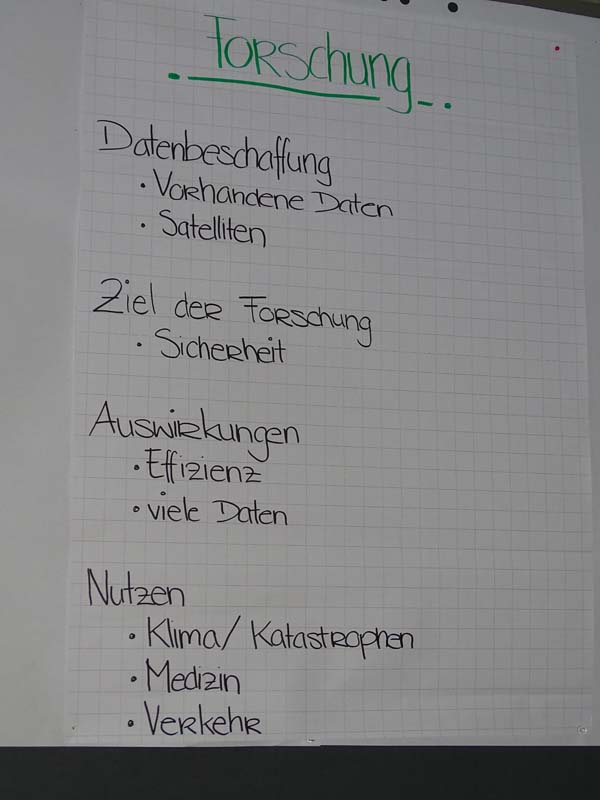 Forschung
Datenbeschaffung
• Vorhandene Daten
• Satelliten
Ziel der Forschung
• Sicherheit
Auswirkungen
• Effizienz
• viele Daten
Nutzen
• Klima/ Katastrophen
• Medizin
• Verkehr